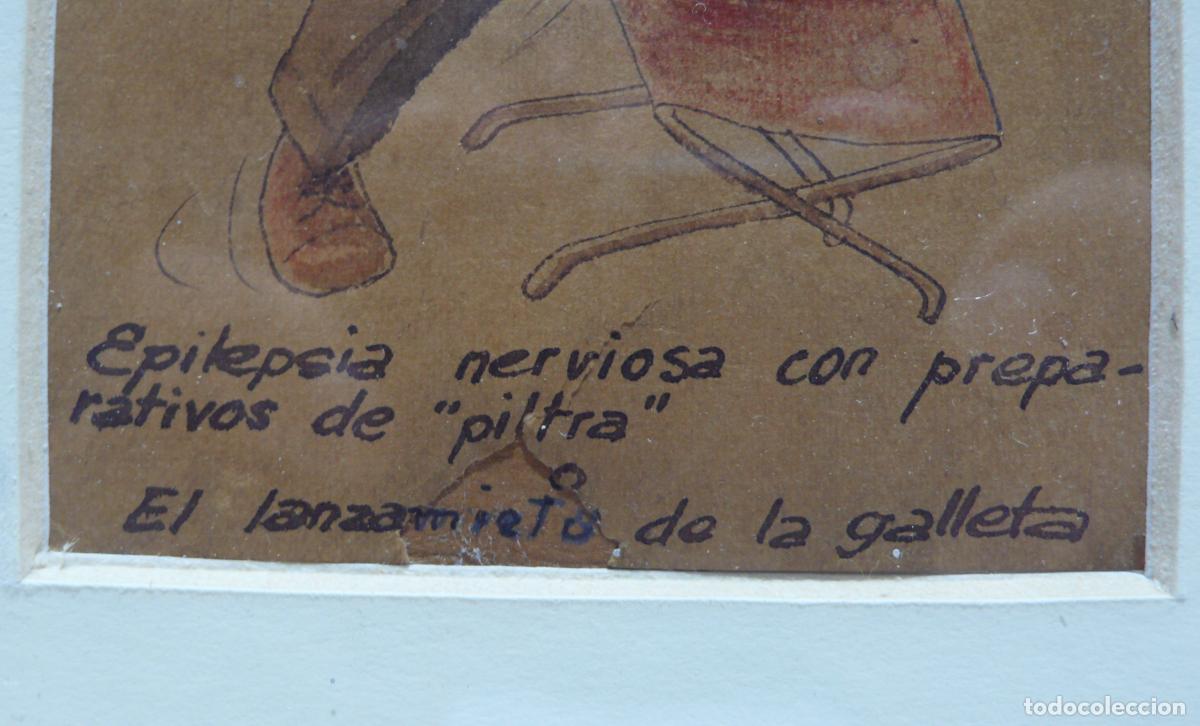 Epilepsia nerviosa con prepa-
rativos de "piltra"
o
El lanzamieto de la galleta
todocoleccion